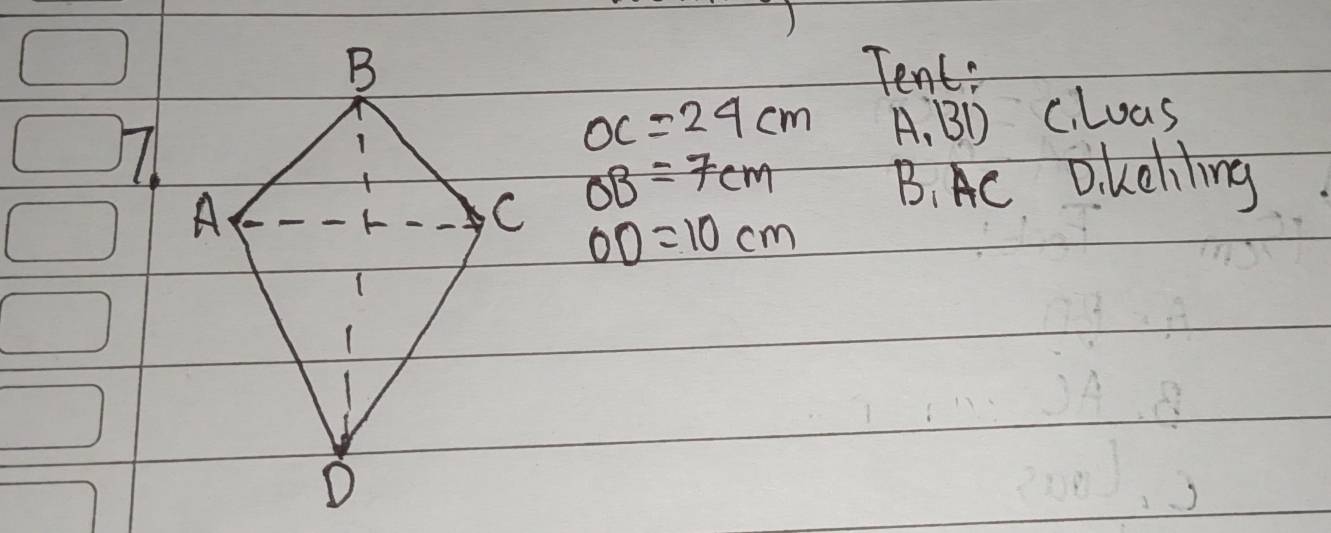 7.
B
A
C
D
OC = 24 cm
OB = 7 cm
OD = 10 cm
Tent:
A. BD C. Luas
B. AC D. keliling